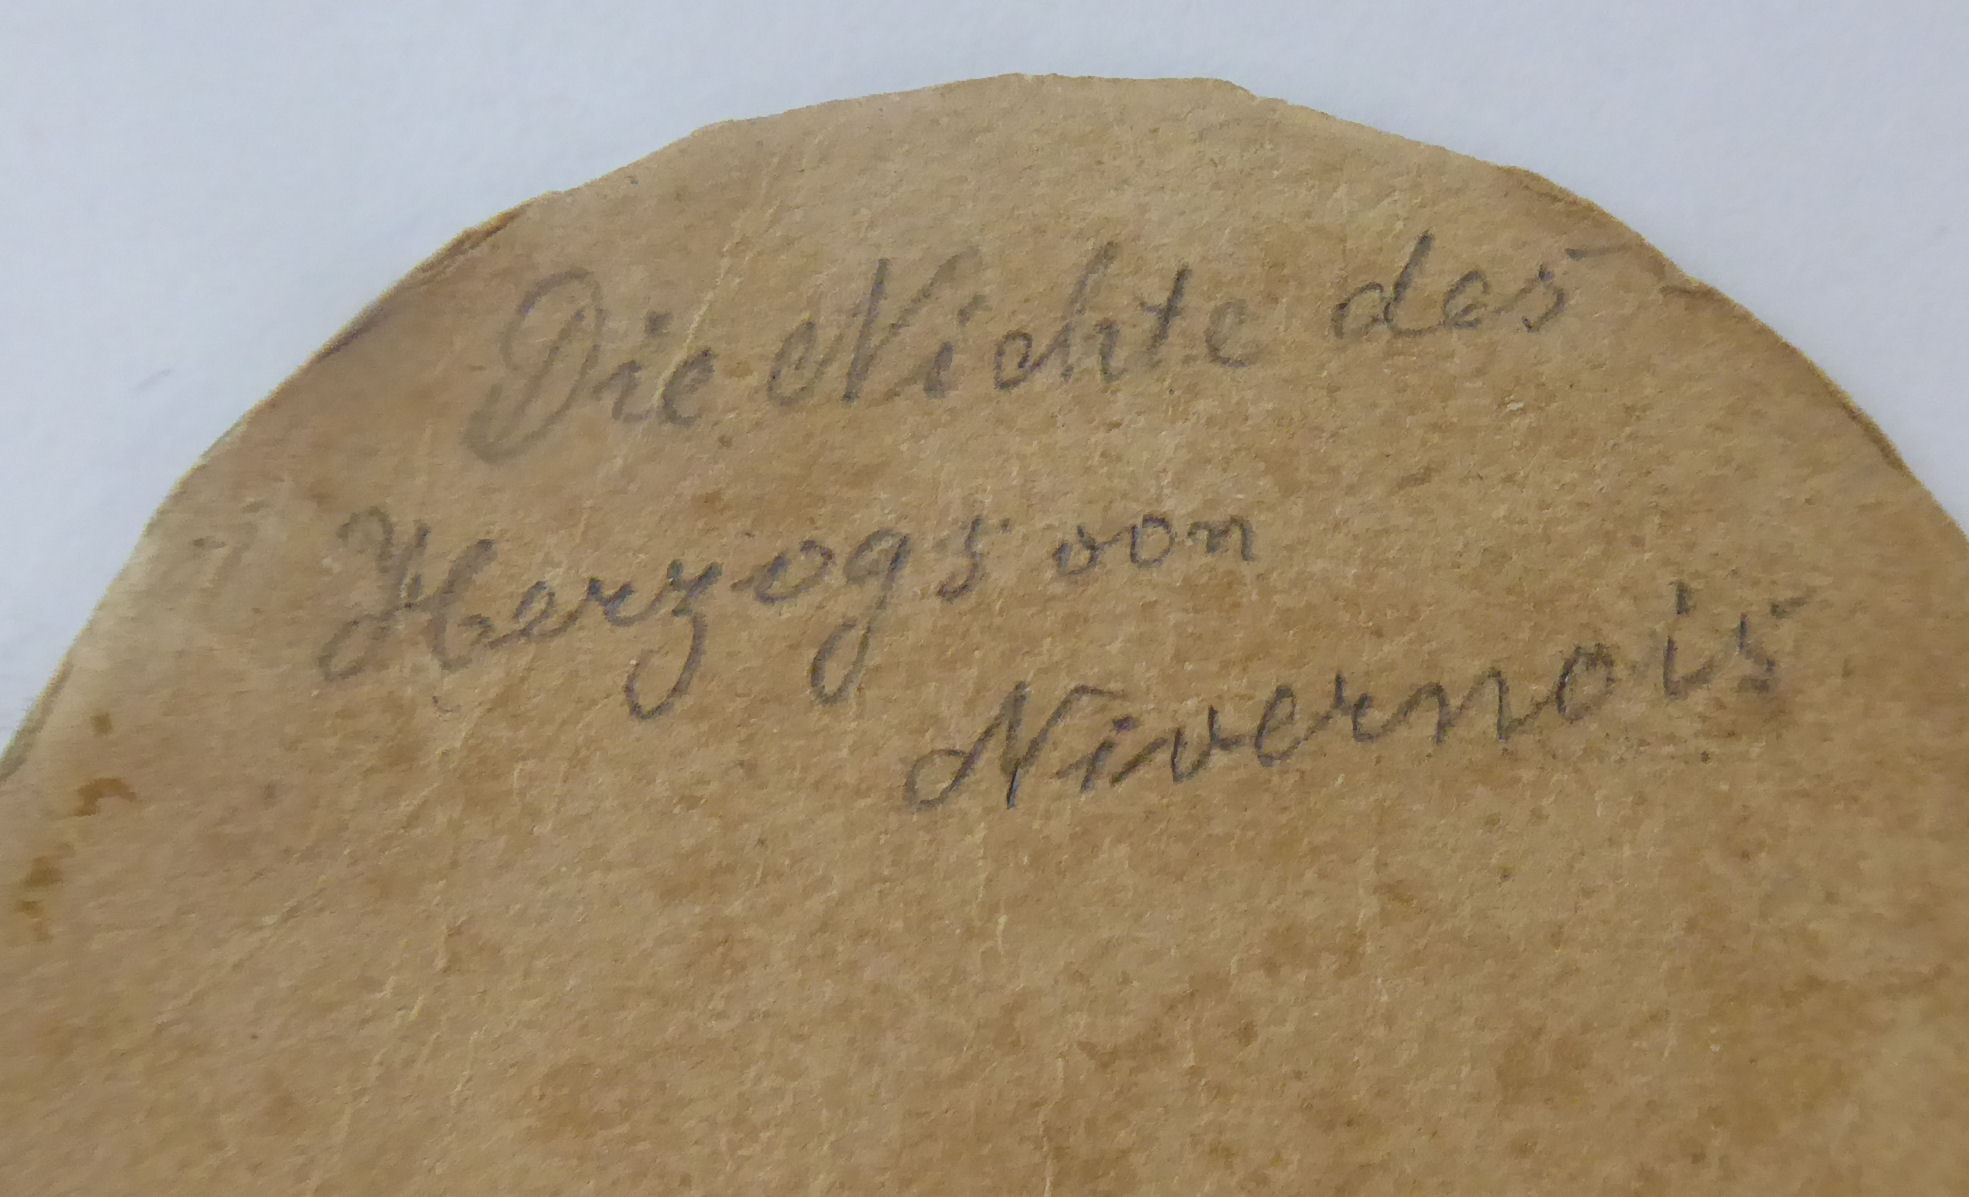 Die Nichte des
Herzogs von
Nivernois